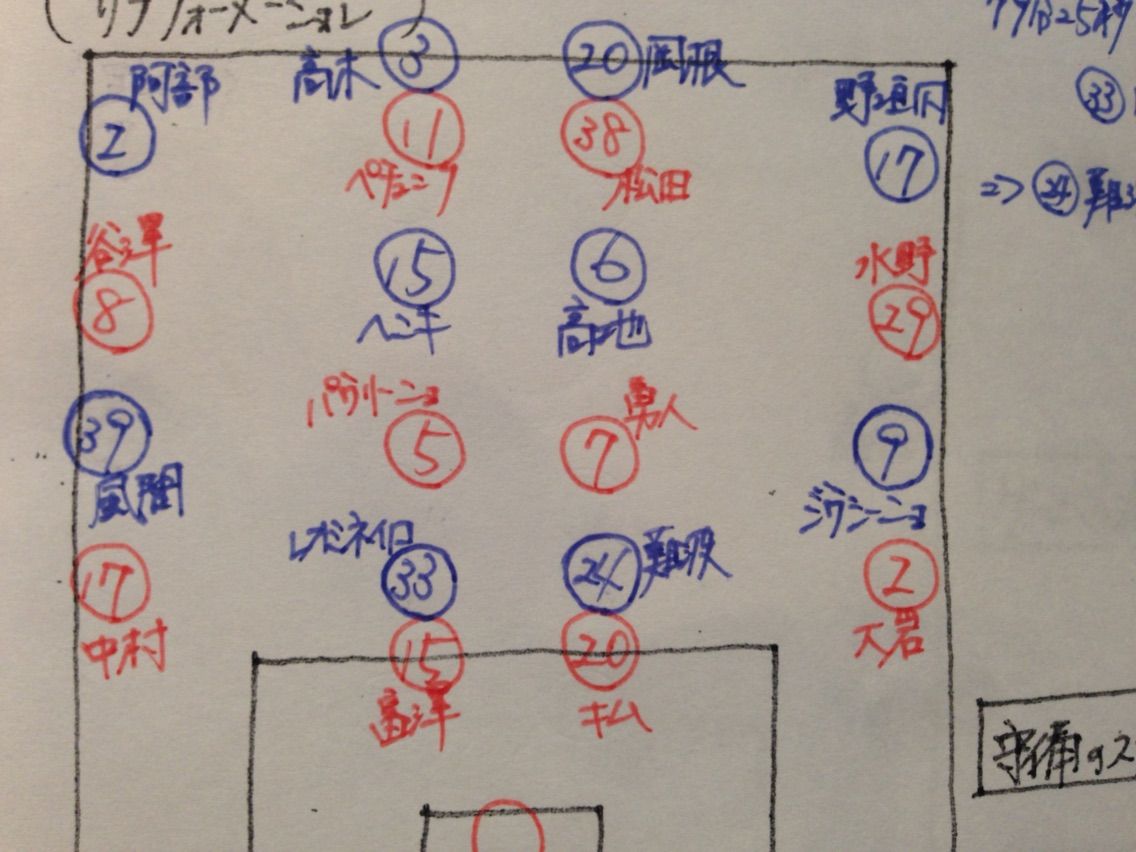 (リフォーメーション)
77分25秒
3 高木
20 岡根
阿部
2
野垣内
17
33
11
ペチュニク
38
松田
⇒ 24 難
谷澤
8
15
ヘニキ
6
高地
水野
29
パウリーニョ
5
勇人
7
39
風間
9
ジウシーニョ
レオミネイロ
33
24 難波
17
中村
2
大岩
15
富澤
20
キム
守備のス